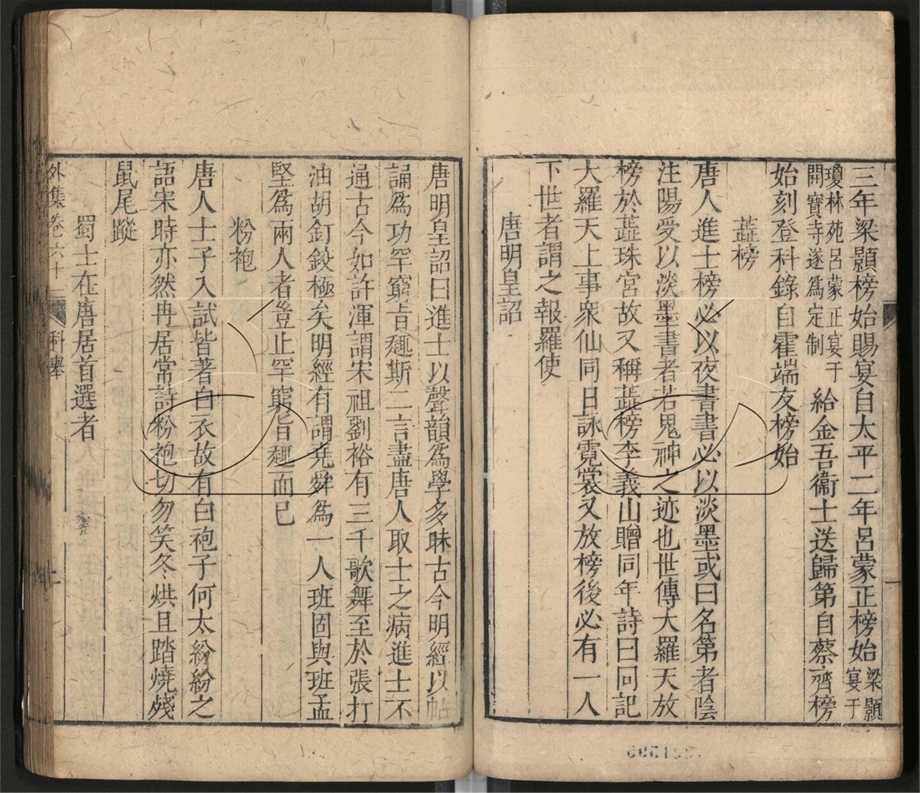 三年梁顥榜始賜宴自太平二年呂蒙正榜始梁顥宴于
瓊林苑呂蒙正宴于開寶寺遂爲定制給金吾衞士送歸第自蔡齊榜
始刻登科錄自霍端友榜始
蘂榜
唐人進士榜必以夜書書必以淡墨或曰名第者陰
注陽受以淡墨書者若鬼神之迹也世傳大羅天放
榜於蘂珠宮故又稱蘂榜李義山贈同年詩曰同記
大羅天上事衆仙同日詠霓裳又放榜後必有一人
下世者謂之報羅使
唐明皇詔
唐明皇詔曰進士以聲韻爲學多昧古今明經以帖
誦爲功罕窮旨趣斯二言盡唐人取士之病進士不
通古今如許渾謂宋祖劉裕有三千歌舞至於張打
油胡釘鉸極矣明經有謂堯舜爲一人班固與班孟
堅爲兩人者豈止罕窮旨趣而已
粉袍
唐人士子入試皆著白衣故有白袍子何太紛紛之
語宋時亦然冉居常詩粉袍切勿笑冬烘且踏燒殘
鼠尾蹤
蜀士在唐居首選者
外集卷六十
科舉